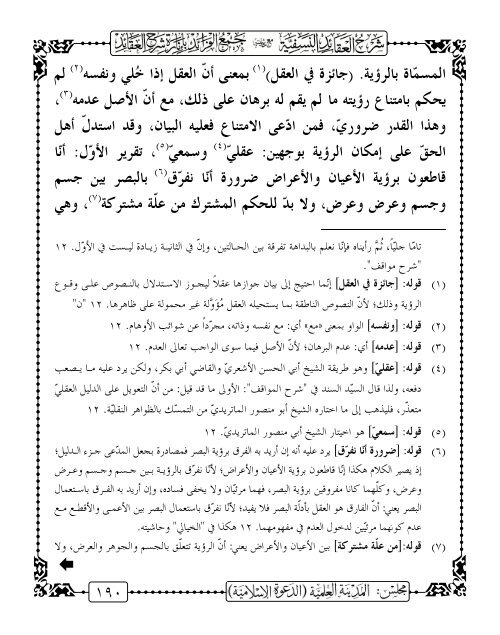 شرح العقائد النسفية مع حاشيته جمع الفرائد بإنارة شرح العقائد
المسمّاة بالرؤية. (جائزة في العقل)(١) بمعنى أنّ العقل إذا خُلي ونفسه(٢) لم
يحكم بامتناع رؤيته ما لم يقم له برهان على ذلك، مع أنّ الأصل عدمه(٣)،
وهذا القدر ضروريّ، فمن ادّعى الامتناع فعليه البيان، وقد استدلّ أهل
الحقّ على إمكان الرؤية بوجهين: عقليّ(٤) وسمعيّ(٥)، تقرير الأوّل: أنّا
قاطعون برؤية الأعيان والأعراض ضرورة أنّا نفرّق(٦) بالبصر بين جسم
وجسم وعرض وعرض، ولا بدّ للحكم المشترك من علّة مشتركة(٧)، وهي
تامّا جليّاً، ثُمَّ رأيناه فإنّا نعلم بالبداهة تفرقة بين الحالتين، وإنّ في الثانية زيادة ليست في الأوّل. ١٢
"شرح مواقف".
(١) قوله: [جائزة في العقل] إنّما احتيج إلى بيان جوازها عقلاً ليجوز الاستدلال بالنصوص على وقوع
الرؤية وذلك؛ لأنّ النصوص الناطقة بما يستحيله العقل مُؤوّلة غير محمولة على ظاهرها. ١٢ "ن"
(٢) قوله: [ونفسه] الواو بمعنى «مع» أي: مع نفسه وذاته، مجرّداً عن شوائب الأوهام. ١٢
(٣) قوله: [عدمه] أي: عدم البرهان؛ لأنّ الأصل فيما سوى الواجب تعالى العدم. ١٢
(٤) قوله: [عقليّ] وهو طريقة الشيخ أبي الحسن الأشعريّ والقاضي أبي بكر، ولكن يرد عليه ما يصعب
دفعه، ولذا قال السيّد السند في "شرح المواقف": الأولى ما قد قيل: من أنّ التعويل على الدليل العقليّ
متعذّر، فليذهب إلى ما اختاره الشيخ أبو منصور الماتريديّ من التمسّك بالظواهر النقليّة. ١٢
(٥) قوله: [سمعيّ] هو اختيار الشيخ أبي منصور الماتريديّ. ١٢
(٦) قوله: [ضرورة أنّا نفرّق] يرد عليه أنه إن أريد به الفرق برؤية البصر فمصادرة بجعل المدّعى جزء الدليل؛
إذ يصير الكلام هكذا إنّا قاطعون برؤية الأعيان والأعراض؛ لأنّا نفرّق بالرؤيـة بـين جـسم وجـسم وعـرض
وعرض، وكلّهما كانا مفروقين برؤية البصر، فهما مرئيّان ولا يخفى فساده، وإن أريد به الفرق باستعمال
البصر يعني: أنّ الفارق هو العقل بأدلّة البصر فلا يفيد؛ لأنّا نفرّق باستعمال البصر بين الأعمى والأقطع مع
عدم كونهما مرئيّين لدخول العدم في مفهومهما. ١٢ هكذا في "الخيالي" وحاشيته.
(٧) قوله:[من علّة مشتركة] بين الأعيان والأعراض يعني: أنّ الرؤية تتعلّق بالجسم والجوهر والعرض، ولا
مجلس: المدينة العلمية (الدعوة الإسلامية)
١٩٠